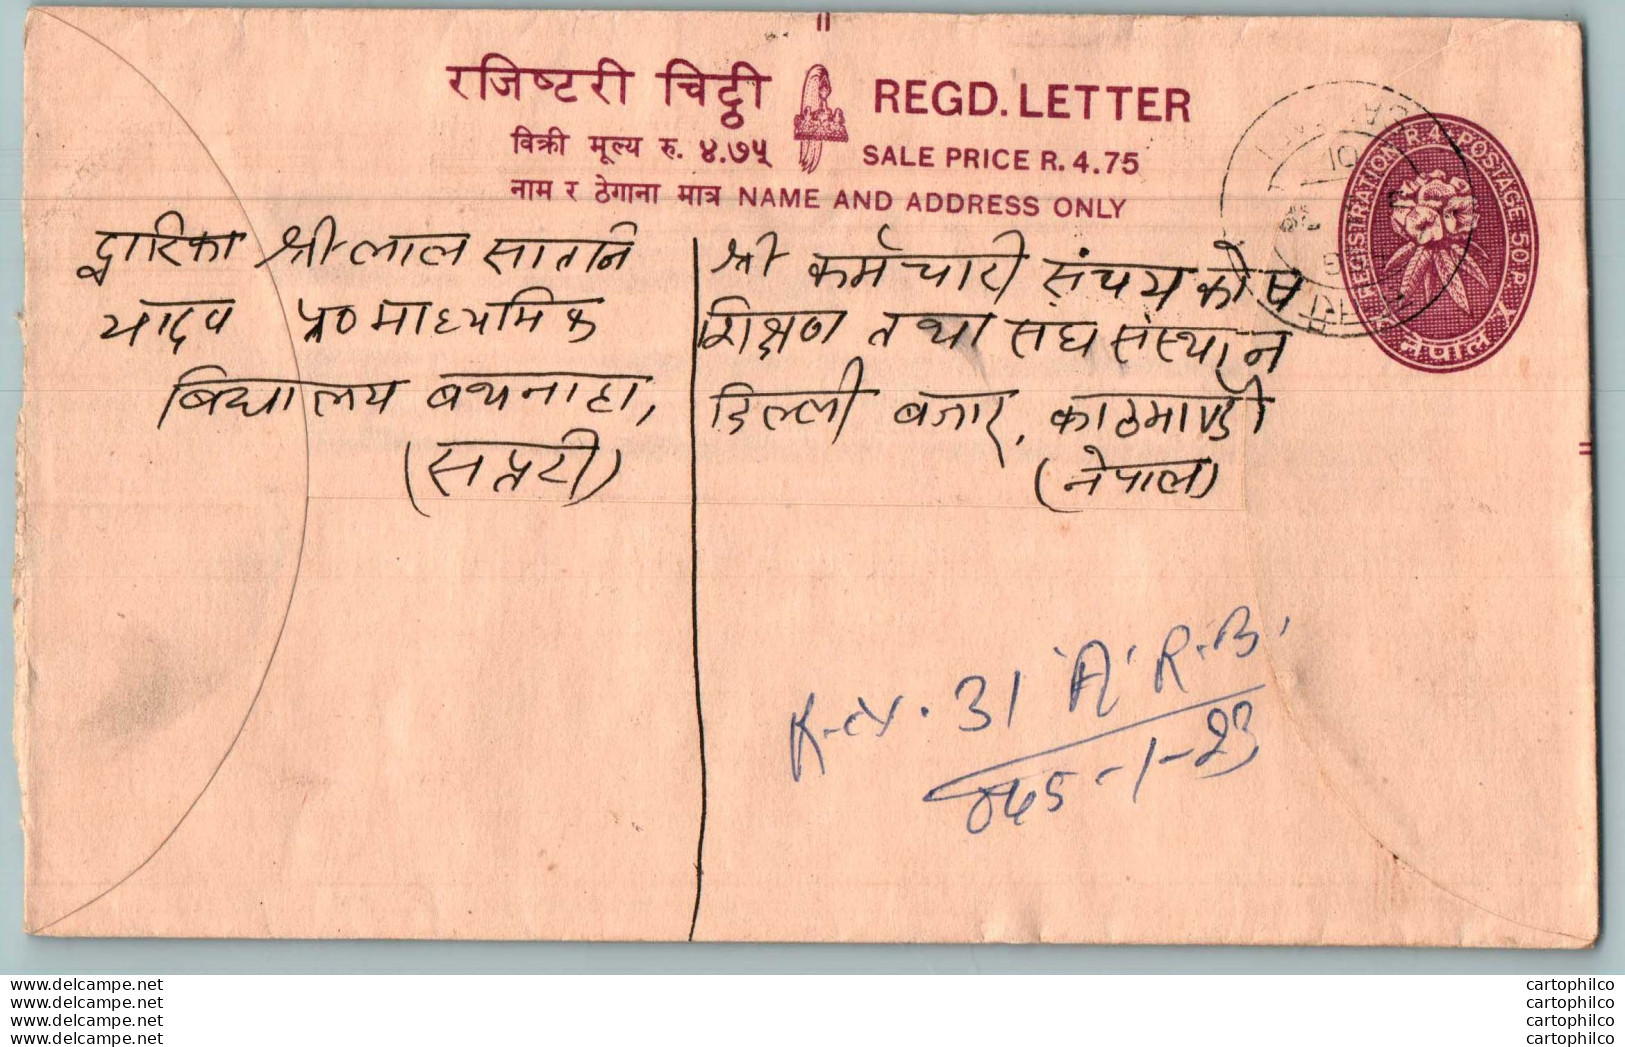 रजिष्टरी चिट्ठी REGD. LETTER
विक्री मूल्य रु. ४.७५ SALE PRICE R. 4.75
नाम र ठेगाना मात्र NAME AND ADDRESS ONLY
REGISTRATION POSTAGE 50 P.
नेपाल
द्वारिका श्रीलाल
यादव प्र० माध्यमिक
बिद्यालय बथनाहा,
(सप्तरी)
श्री कर्मचारी संचय कोष
शिक्षण तथा संघ संस्थान
डिल्ली बजार, काठमाण्डौ
(नेपाल)
31 'A' R.B.
-1-23
www.delcampe.net
www.delcampe.net
www.delcampe.net
www.delcampe.net
cartophilco
cartophilco
cartophilco
cartophilco